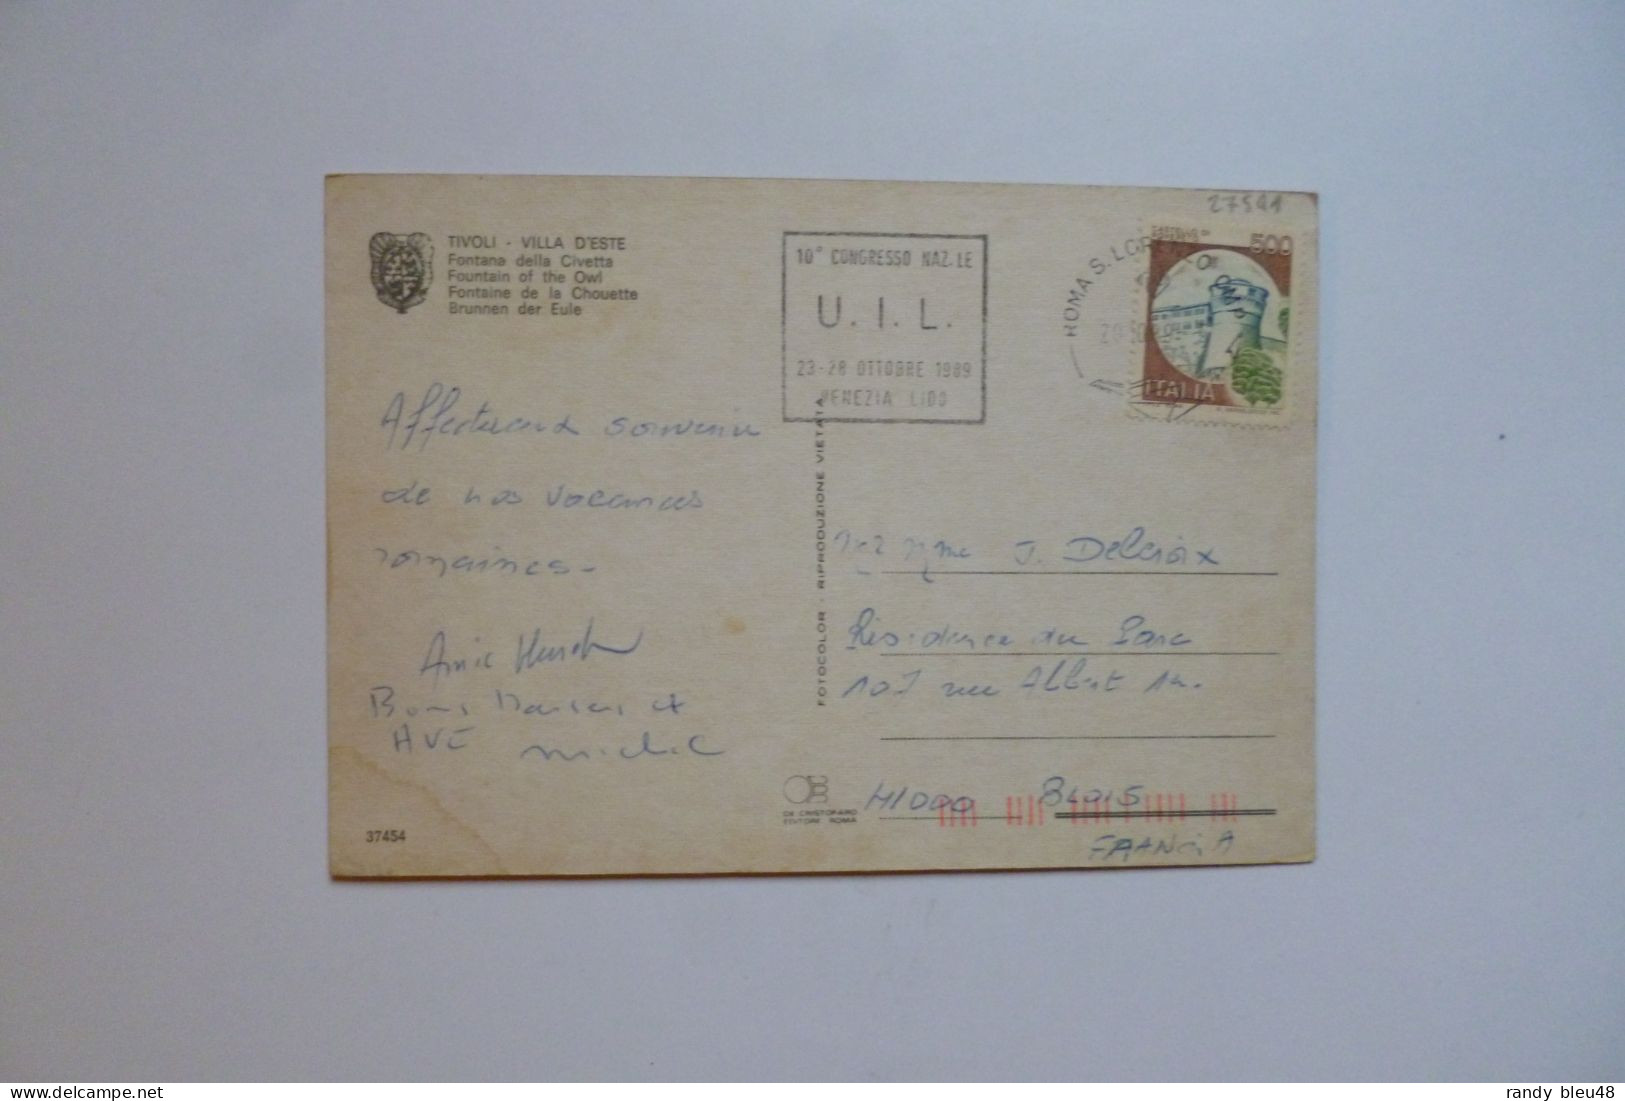 27541
TIVOLI - VILLA D'ESTE
Fontana della Civetta
Fountain of the Owl
Fontaine de la Chouette
Brunnen der Eule
10° CONGRESSO NAZ.LE
U. I. L.
23-28 OTTOBRE 1989
VENEZIA LIDO
ROMA S. LOR
500
ITALIA
Affectueux souvenir
de nos vacances
romaines.
Bons et
AVE Michel
FOTOCOLOR - RIPRODUZIONE VIETATA
Mme J. Delcroix
Résidence du Parc
107 rue Albert 1er.
41000 BLOIS
FRANCIA
DE CRISTOFARO
EDITORE ROMA
37454
randy bleu48